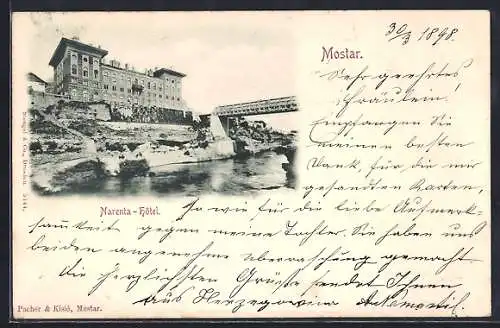 30/3 1898.
Mostar.
Sehr geehrtes
Fräulein!
Empfangen Sie
meinen besten
Dank, für die mir
gesandten Karten,
Narenta-Hôtel.
so wie für die liebe Aufmerk-
samkeit gegen meine Tochter. Sie haben uns
beiden angenehme Überraschung gemacht.
Die herzlichsten Grüsse sendet Ihnen
aus Herzegowina
Pacher & Kisić, Mostar.
Stengel & Co., Dresden. 5144.